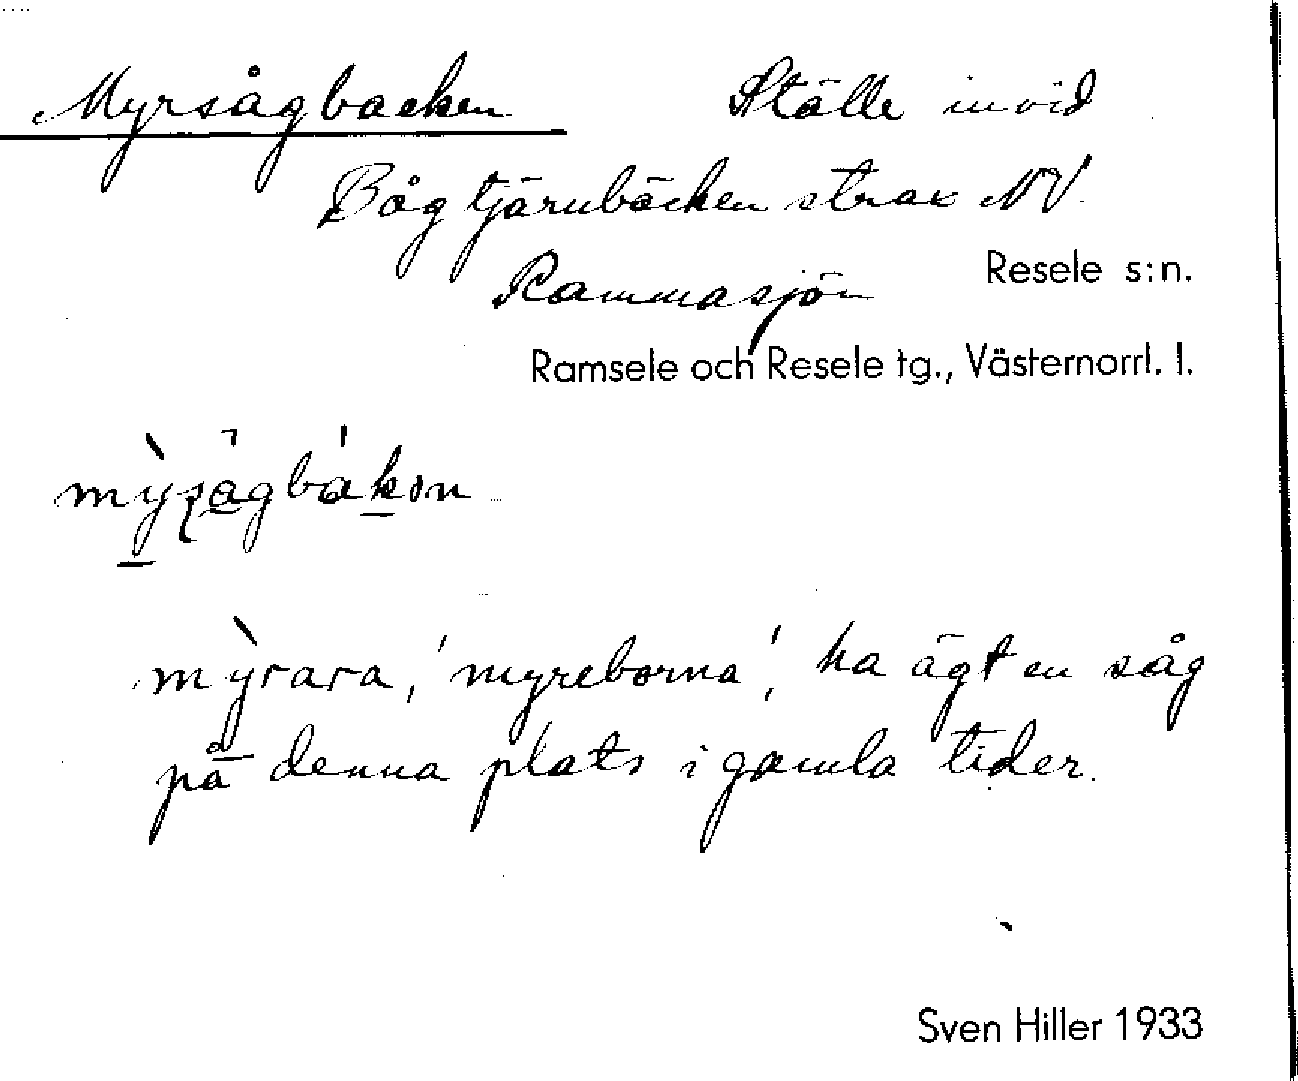 Myrsågbacken Ställe invid
Bågtjärnbäcken strax NV
Rammasjön Resele s:n.
Ramsele och Resele tg., Västernorrl. l.
mỳrara, 'myreborna', ha ägt en såg
på denna plats i gamla tider.
Sven Hiller 1933